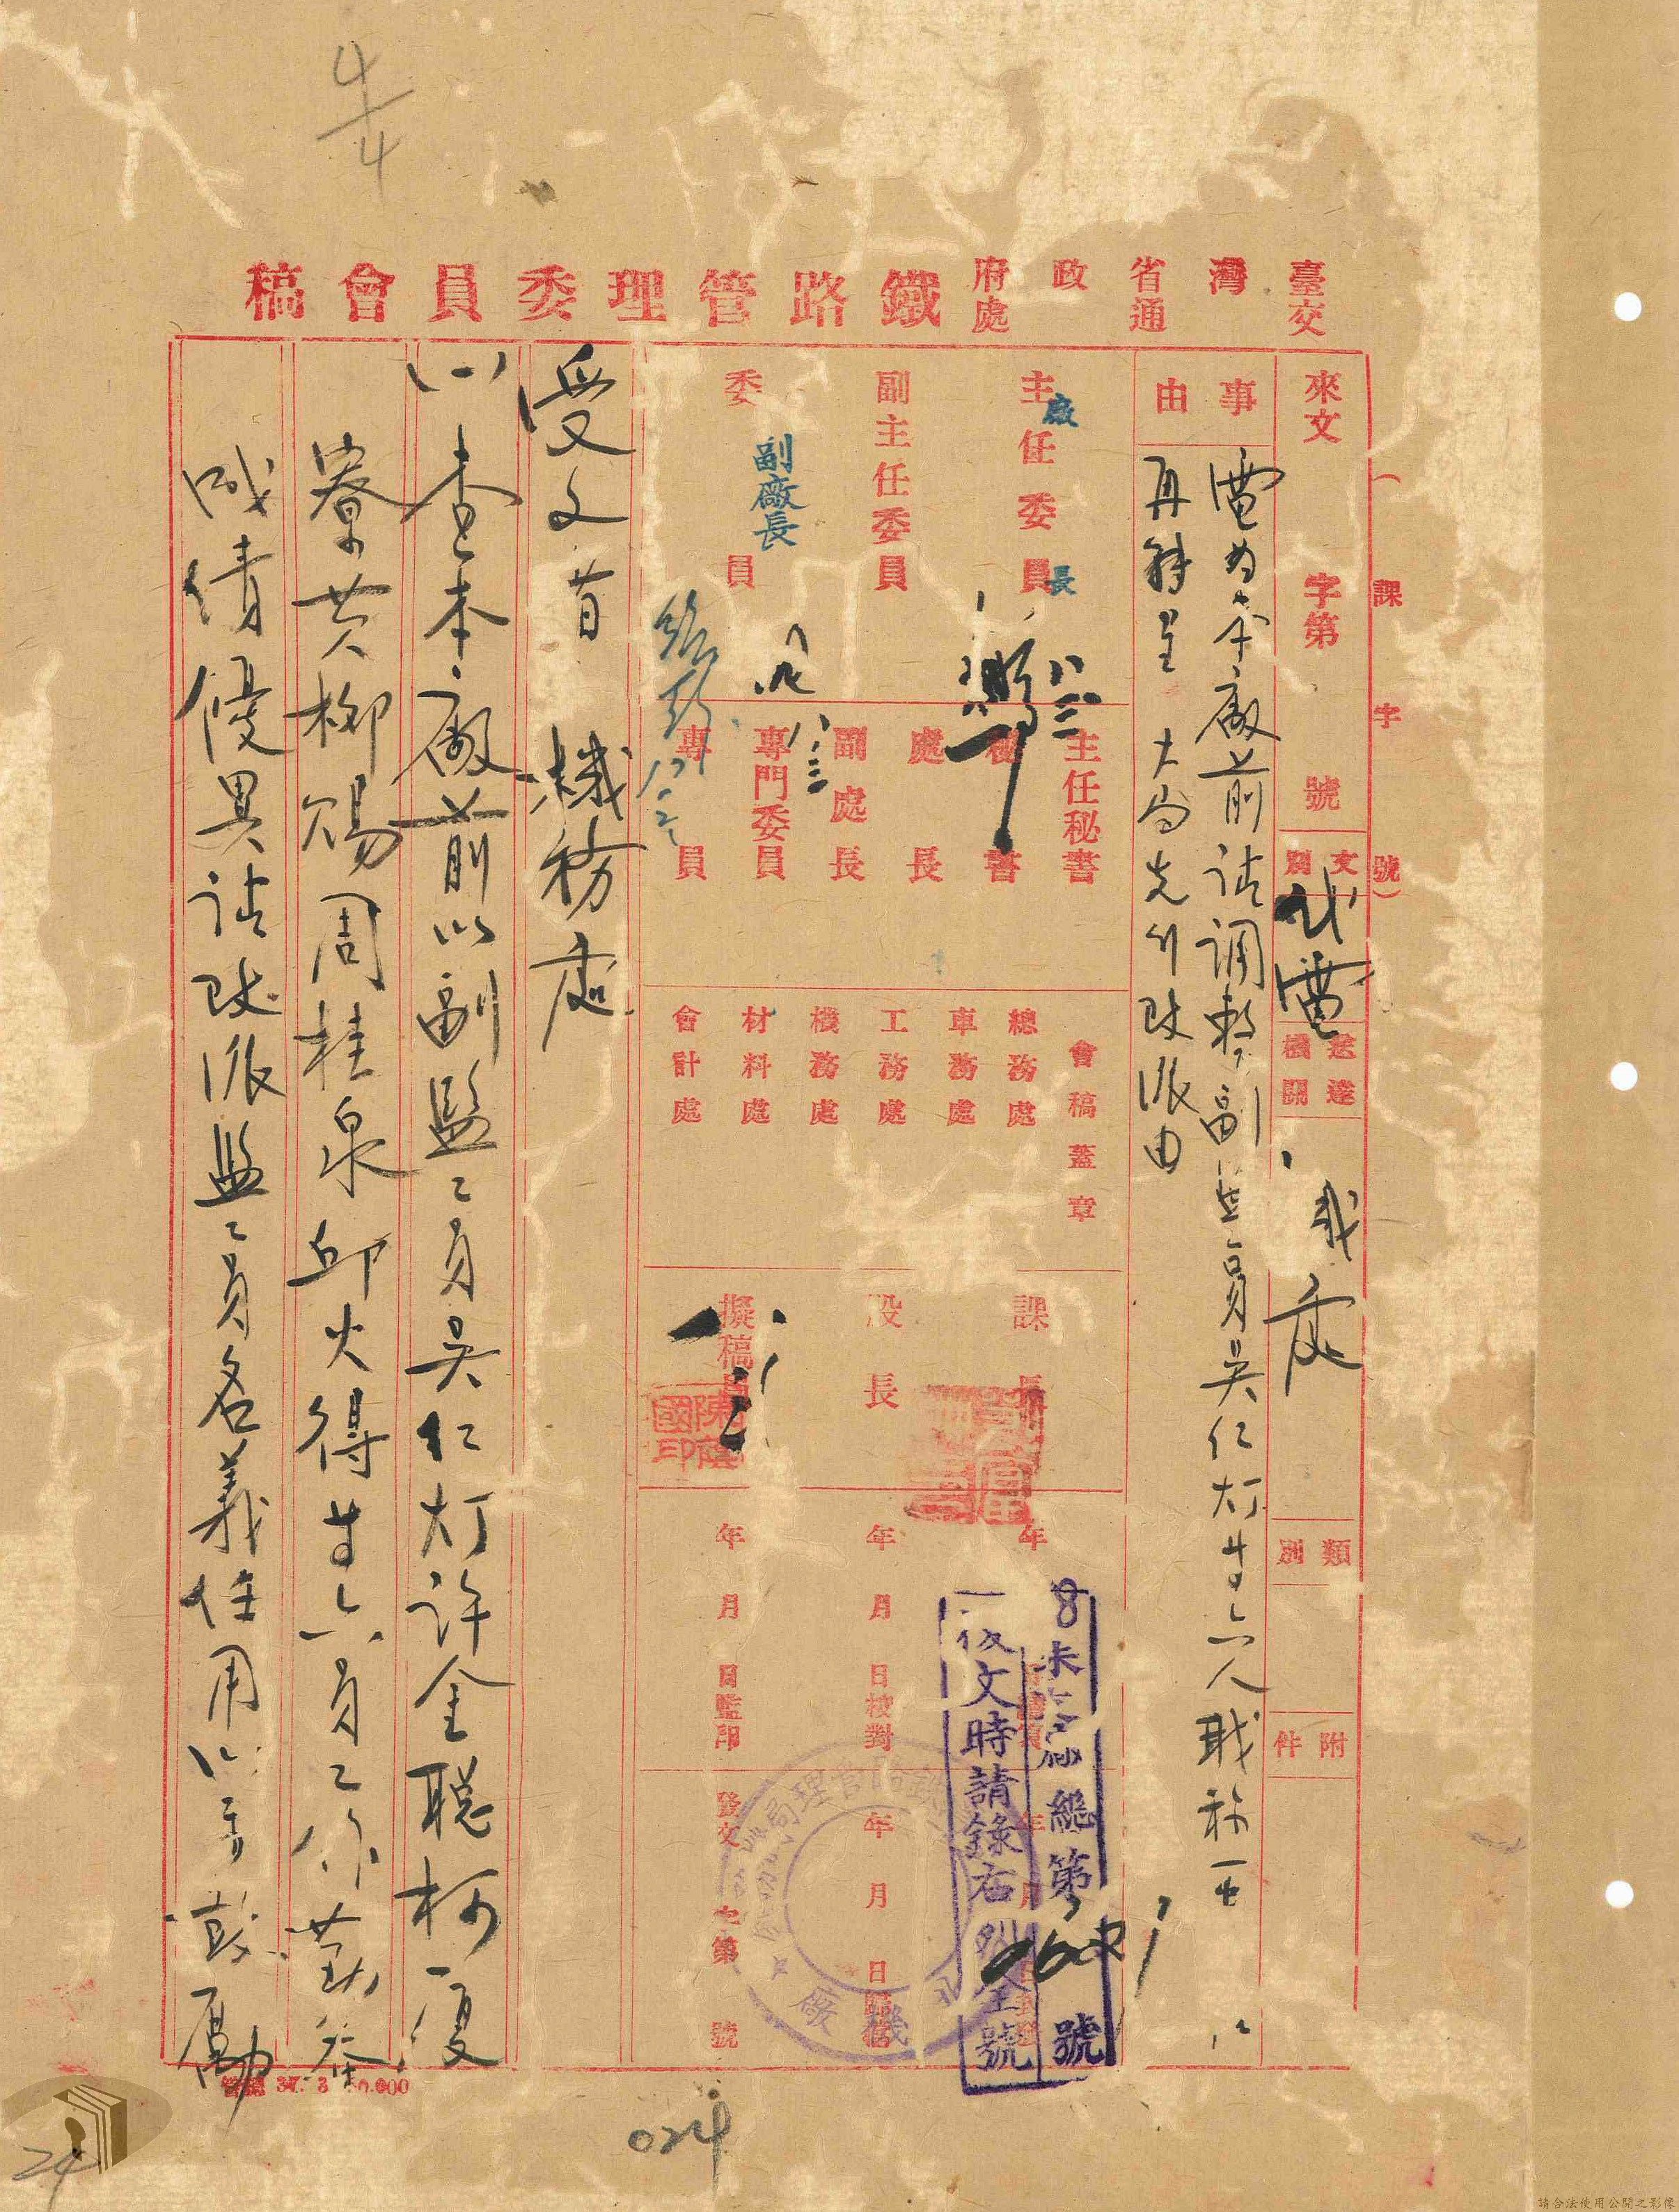 4/4
臺灣省政府
交通處
鐵路管理委員會稿
(課字號)
來文 字第 號
文別 代電
送達機關 機務處
類別
附件
事由
電為本廠前請調整副監工員吳仁灯等六人職称一节仍
再特呈大局先行改派由
主任委員
廠長
八三
副主任委員
委員
副廠長
八三
主任秘書
秘書
處長
副處長
專門委員
專員
會稿蓋章
總務處
車務處
工務處
機務處
材料處
會計處
課長
股長
擬稿員
年月日監印
年月日校對
年月日歸檔
發文 字第 號
總第 號
復文時請錄右列全號
受文者 機務處
(一)查本廠前以副監工員吳仁灯許金聰柯復
寮黃柳賜周桂泉邱火得等六員工作勤奮
成績優異請改派監工員名義任用以資鼓勵
37. 3 50.000
024
24
請合法使用公開之影像